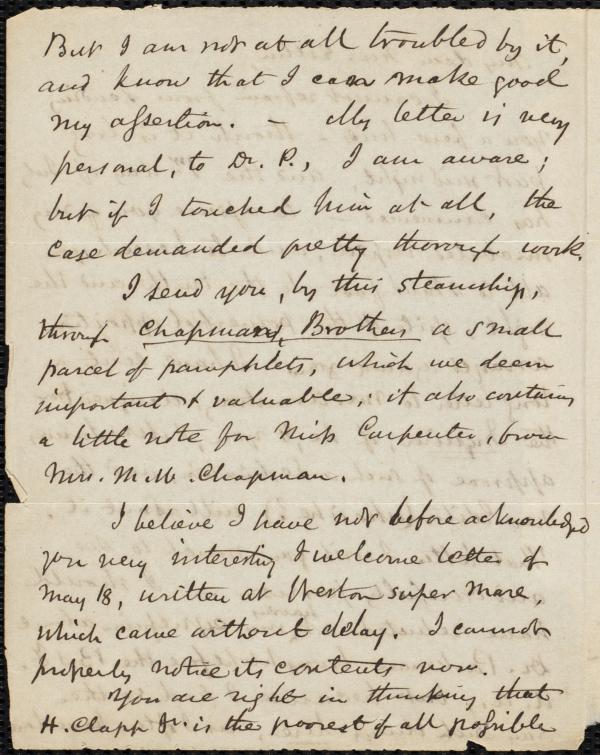 But I am not at all troubled by it,
and know that I can make good
my assertion. - My letter is very
personal, to Dr. P., I am aware;
but if I touched him at all, the
case demanded pretty thorough work.
I send you, by this steamship,
through Chapmans, Brothers a small
parcel of pamphlets, which we deem
important & valuable; it also contains
a little note for Miss Carpenter, from
Mrs. M. W. Chapman.
I believe I have not before acknowledged
you very interesting & welcome letter of
May 18, written at Weston super Mare,
which came without delay. I cannot
properly notice its contents now.
You are right in thinking that
H. Clapp Jr. is the poorest of all possible